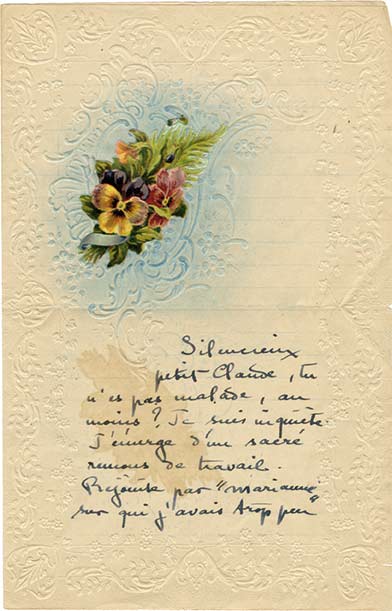 Silencieux
petit Claude, tu
n'es pas malade, au
moins? Je suis inquiète.
J'émerge d'un sacré
remous de travail.
Rejointe par "Marianne"
sur qui j'avais trop peu